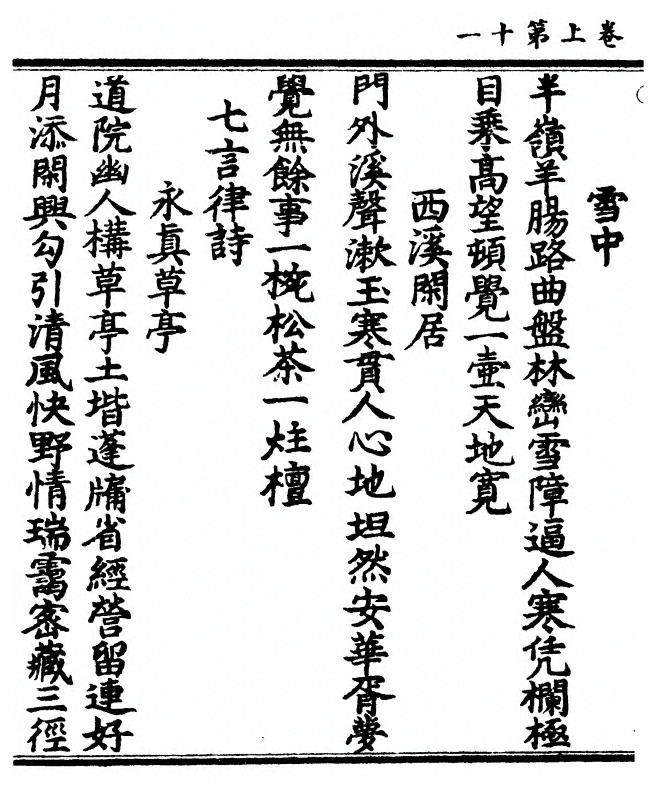 卷上第十一
雪中
半嶺羊腸路曲盤林巒雪障逼人寒凭欄極
目乘高望頓覺一壺天地寬
西溪閑居
門外溪聲漱玉寒貫人心地坦然安華胥夢
覺無餘事一椀松茶一炷檀
七言律詩
永眞草亭
道院幽人構草亭土堦蓬牖省經營留連好
月添閑興勾引清風快野情瑞靄密藏三徑